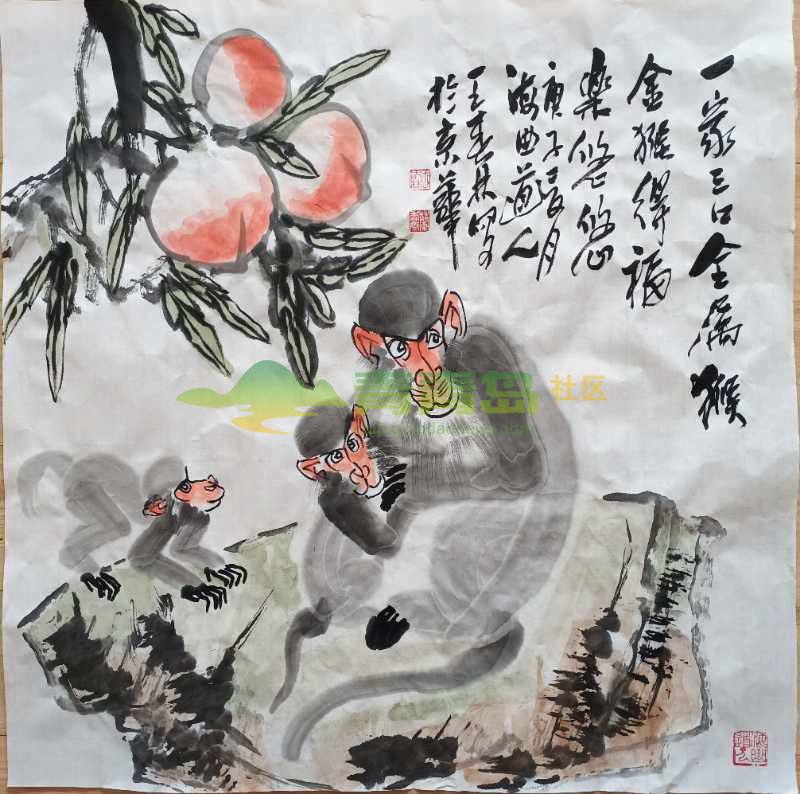 一家三口全属猴
金猴得福
乐悠悠
庚子五月
海曲道人
王春林写
于京华
青青岛社区